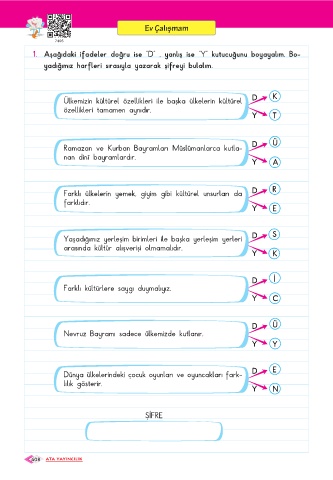 Ev Çalışmam
1. Aşağıdaki ifadeler doğru ise "D" , yanlış ise "Y" kutucuğunu boyayalım. Bo-
yadığımız harfleri sırasıyla yazarak şifreyi bulalım.
Ülkemizin kültürel özellikleri ile başka ülkelerin kültürel
özellikleri tamamen aynıdır.
D K
Y T
Ramazan ve Kurban Bayramları Müslümanlarca kutla-
nan dinî bayramlardır.
D Ü
Y A
Farklı ülkelerin yemek, giyim gibi kültürel unsurları da
farklıdır.
D R
Y E
Yaşadığımız yerleşim birimleri ile başka yerleşim yerleri
arasında kültür alışverişi olmamalıdır.
D S
Y K
Farklı kültürlere saygı duymalıyız.
D İ
Y C
Nevruz Bayramı sadece ülkemizde kutlanır.
D Ü
Y Y
Dünya ülkelerindeki çocuk oyunları ve oyuncakları fark-
lılık gösterir.
D E
Y N
ŞİFRE
ATA YAYINCILIK